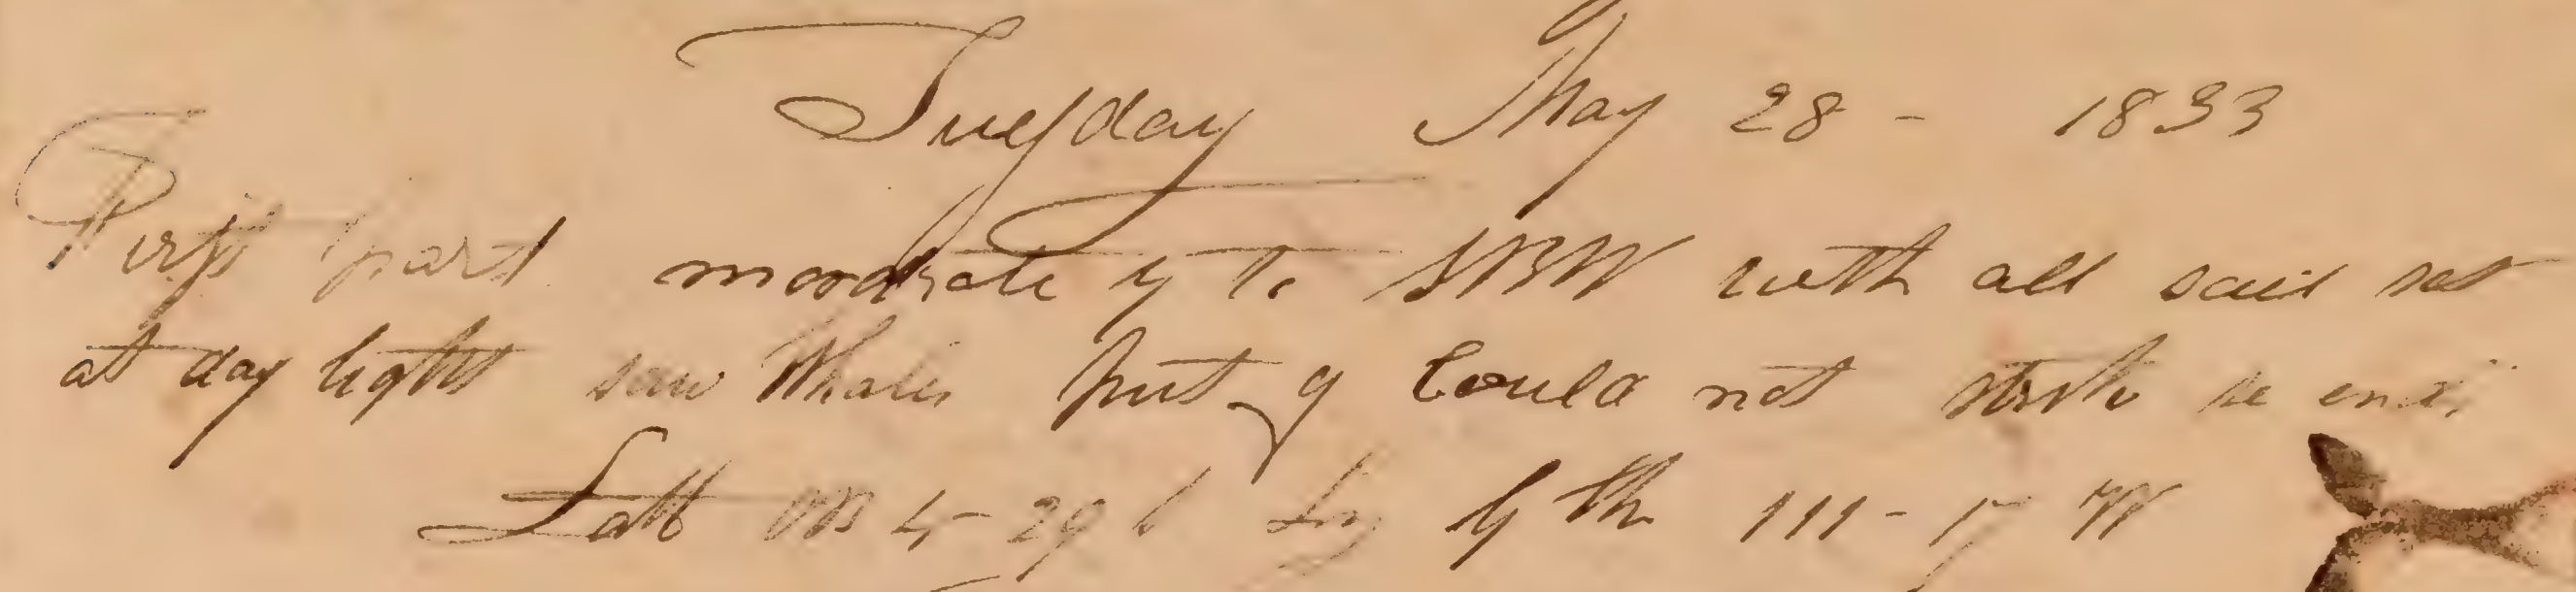 Tuesday May 28 - 1833
First part moodrate y to SBW with all sail set
at day light saw Whales but y Could not strike so ends
Latt 4-29 Long by th 111-17 W